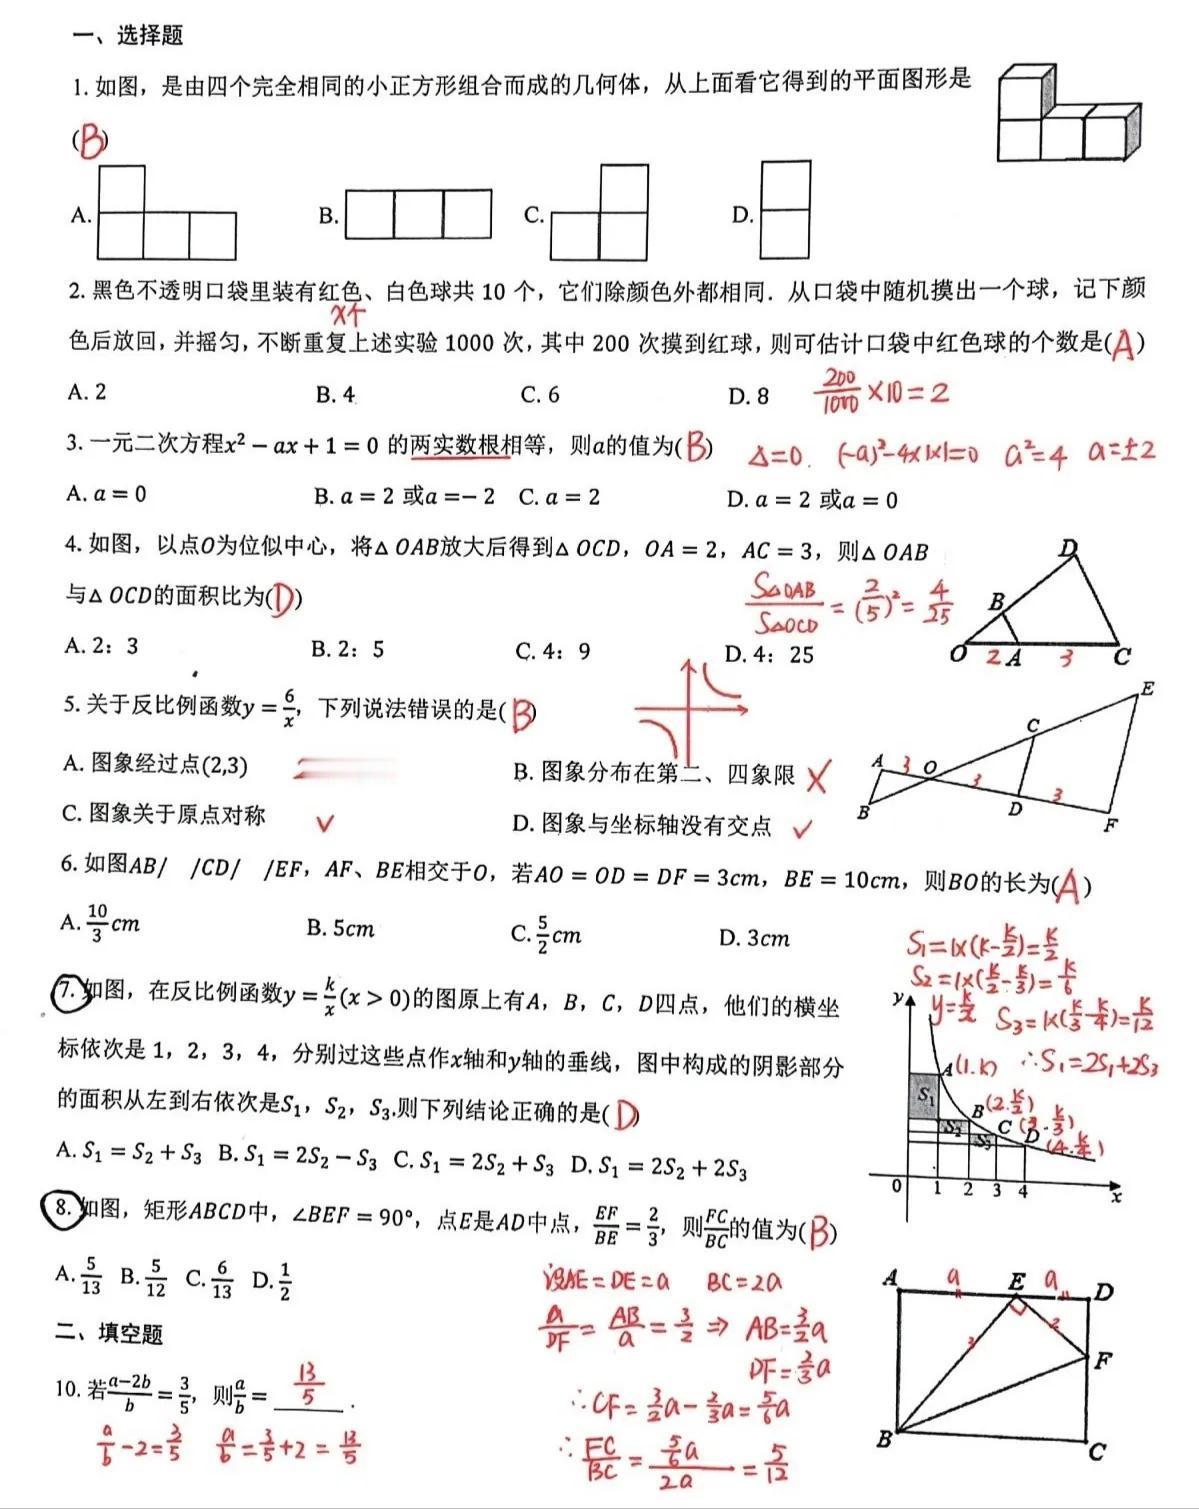 一、选择题
1. 如图，是由四个完全相同的小正方形组合而成的几何体，从上面看它得到的平面图形是
(B)
A.
B.
C.
D.
2. 黑色不透明口袋里装有红色、白色球共 10 个，它们除颜色外都相同．从口袋中随机摸出一个球，记下颜
x个
色后放回，并摇匀，不断重复上述实验 1000 次，其中 200 次摸到红球，则可估计口袋中红色球的个数是(A)
A. 2 B. 4 C. 6 D. 8 200/1000 ×10=2
3. 一元二次方程x² − ax + 1 = 0 的两实数根相等，则a的值为(B) Δ=0. (-a)²-4×1×1=0 a²=4 a=±2
A. a = 0 B. a = 2 或a =− 2 C. a = 2 D. a = 2 或a = 0
4. 如图，以点O为位似中心，将△ OAB放大后得到△ OCD，OA = 2，AC = 3，则△ OAB
与△ OCD的面积比为(D) S△OAB/S△OCD = (2/5)² = 4/25
A. 2：3 B. 2：5 C. 4：9 D. 4：25
D
B
O 2 A 3 C
5. 关于反比例函数y = 6/x，下列说法错误的是(B)
A. 图象经过点(2,3) B. 图象分布在第二、四象限 ×
C. 图象关于原点对称 ✓ D. 图象与坐标轴没有交点 ✓
E
C
A 3 O 3 3
B D F
6. 如图AB/ /CD/ /EF，AF、BE相交于O，若AO = OD = DF = 3cm，BE = 10cm，则BO的长为(A)
A. 10/3 cm B. 5cm C. 5/2 cm D. 3cm
S1=1×(k-k/2)=k/2
S2=1×(k/2-k/3)=k/6
7. 如图，在反比例函数y = k/x (x > 0)的图原上有A，B，C，D四点，他们的横坐
y y=k/x S3=1×(k/3-k/4)=k/12
标依次是 1，2，3，4，分别过这些点作x轴和y轴的垂线，图中构成的阴影部分
A(1.k) ∴S1=2S1+2S3
的面积从左到右依次是S1，S2，S3.则下列结论正确的是(D)
S1 B(2.k/2)
S2 S3 C(3.k/3) D(4.k/4)
A. S1 = S2 + S3 B. S1 = 2S2 − S3 C. S1 = 2S2 + S3 D. S1 = 2S2 + 2S3
0 1 2 3 4 x
8. 如图，矩形ABCD中，∠BEF = 90°，点E是AD中点，EF/BE = 2/3，则FC/BC的值为(B)
A. 5/13 B. 5/12 C. 6/13 D. 1/2
设AE=DE=a BC=2a
a/DF = AB/a = 3/2 ⇒ AB=3/2a
DF=2/3a
∴CF=3/2a-2/3a=5/6a
∴FC/BC = 5/6a/2a = 5/12
A a E a D
3 2
F
B C
二、填空题
10. 若(a−2b)/b = 3/5，则a/b = 13/5 .
a/b -2=3/5 a/b=3/5+2=13/5